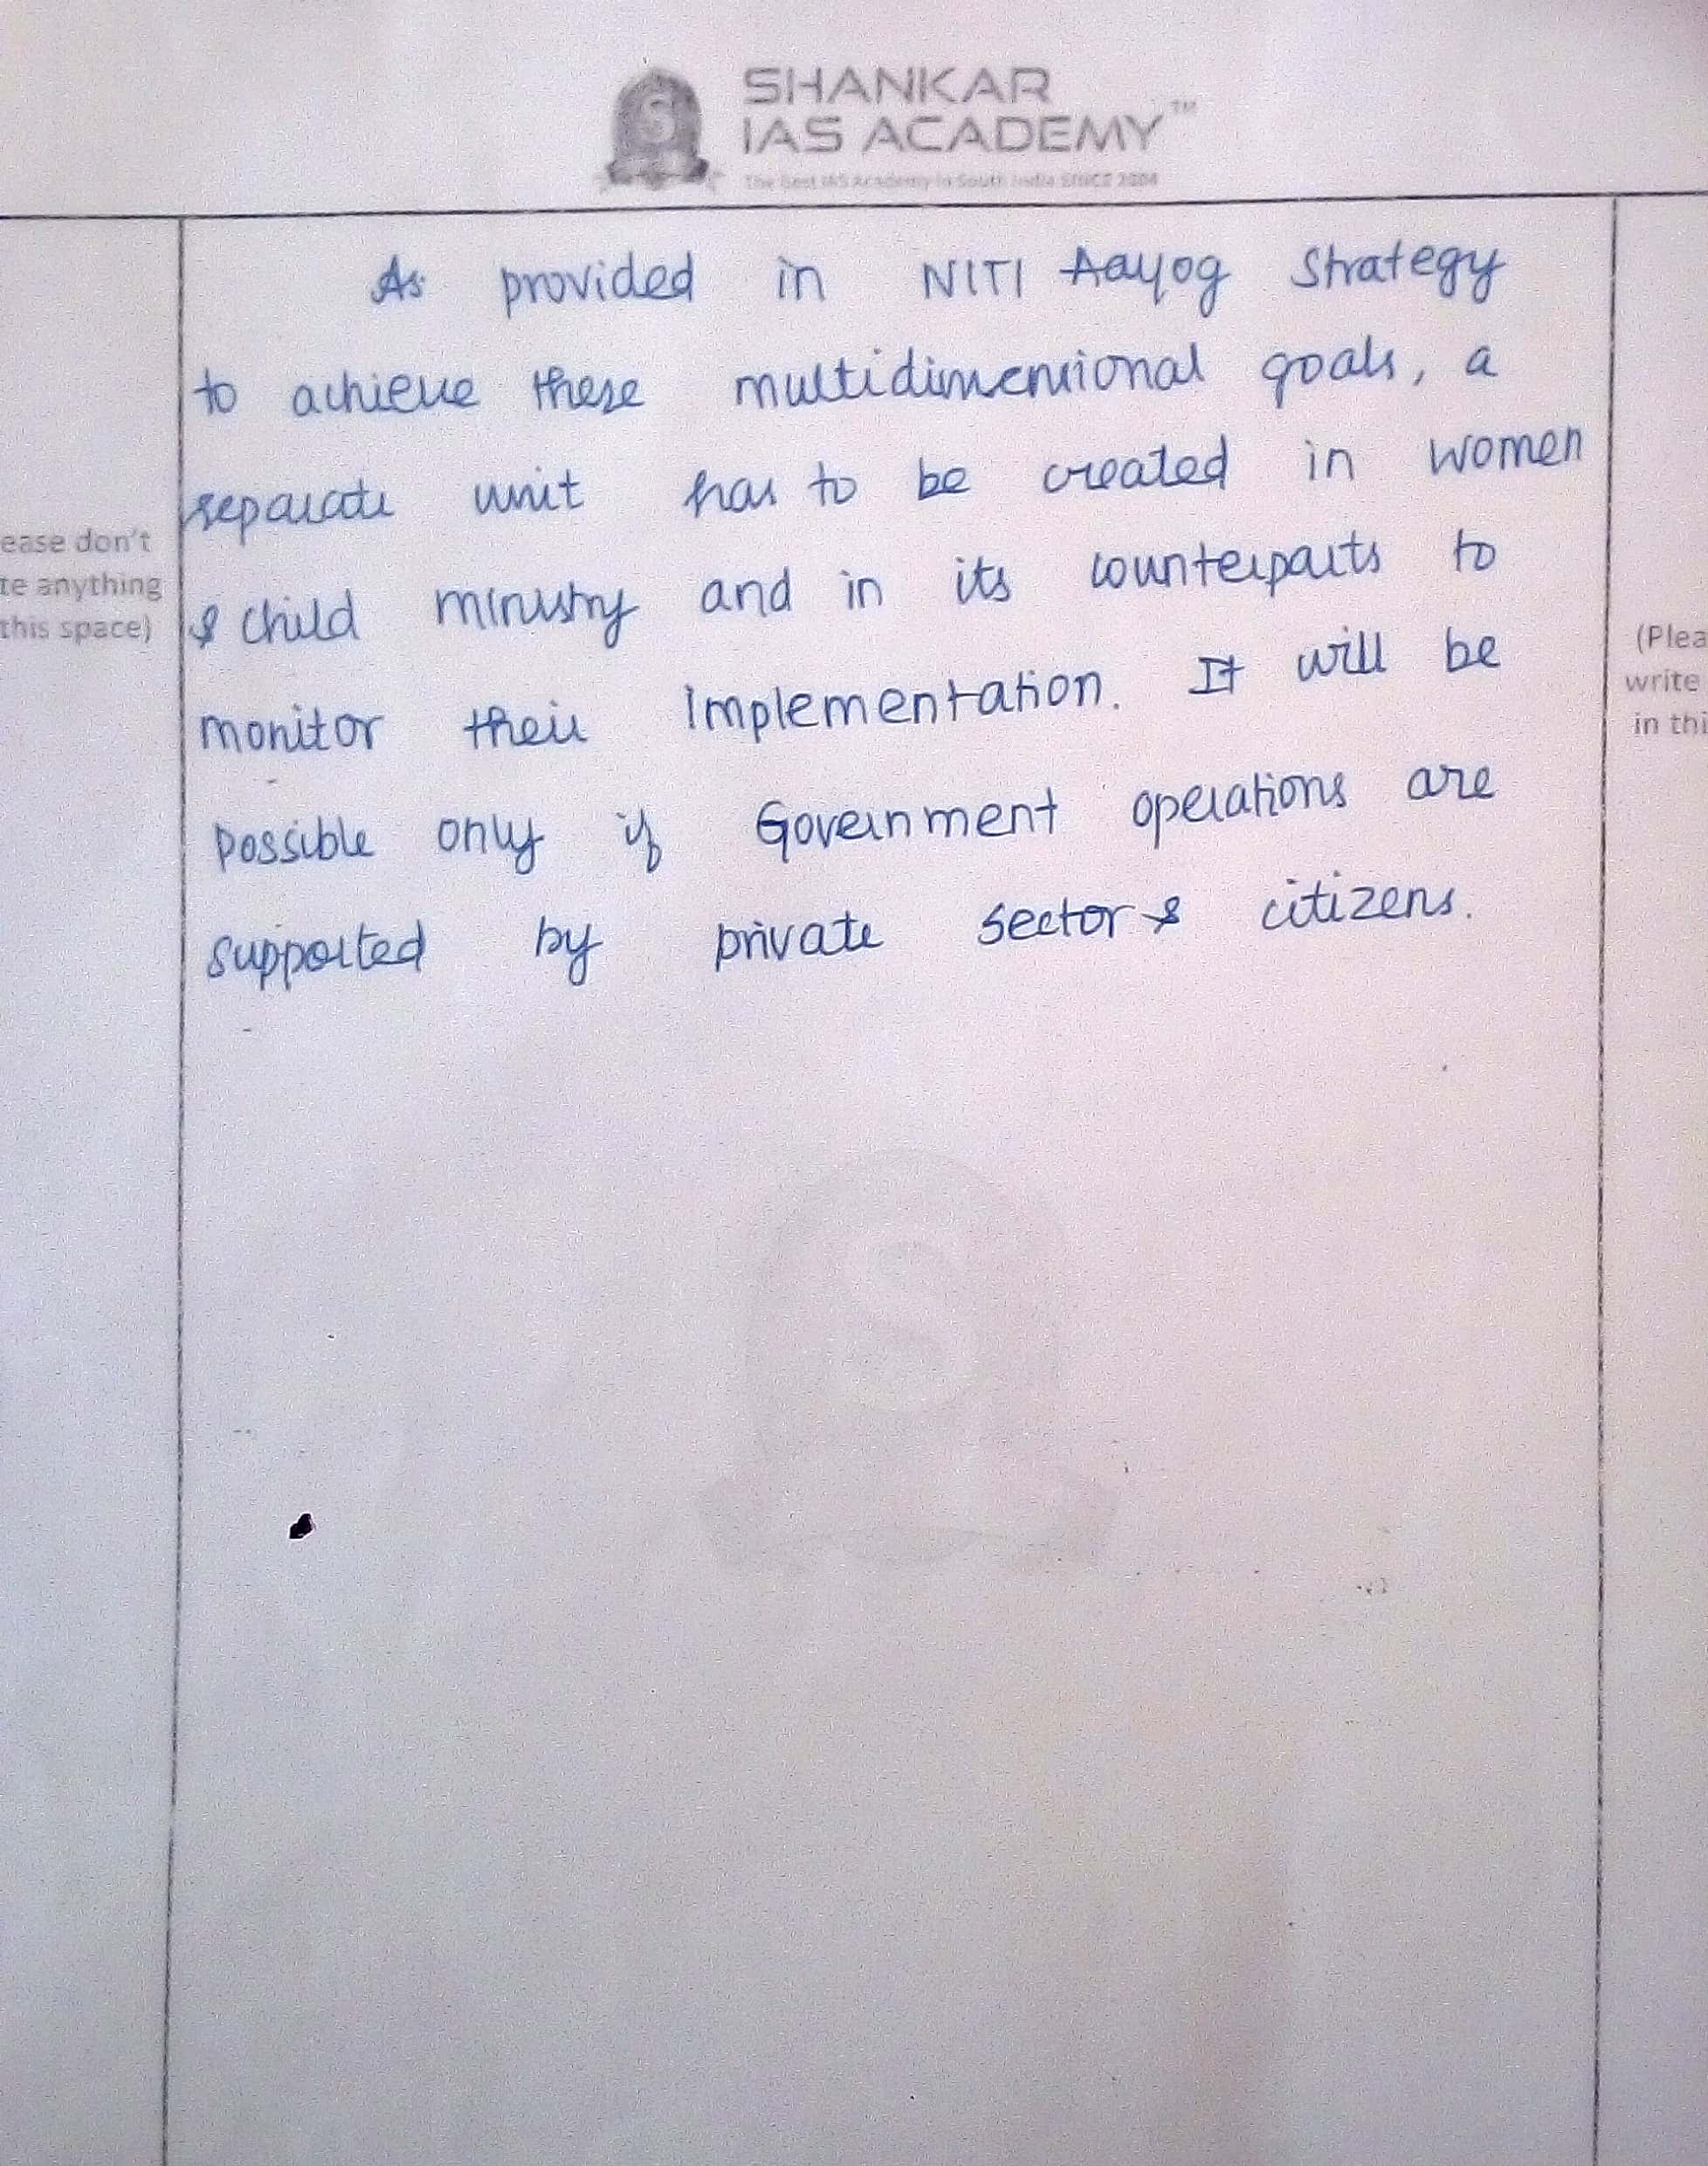 SHANKAR
IAS ACADEMY™
The Best IAS Academy in South India SINCE 2004
As provided in NITI Aayog Strategy
to achieve these multidimensional goals, a
separate unit has to be created in women
& child ministry and in its counterparts to
monitor their implementation. It will be
possible only if Government operations are
supported by private sector & citizens.
ease don't
te anything
this space)
(Plea
write
in thi